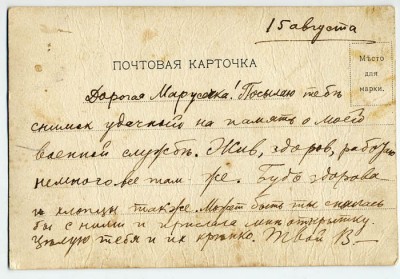 15 августа
ПОЧТОВАЯ КАРТОЧКА
Мѣсто
для
марки.
Дорогая Марусечка! Посылаю тебѣ
снимок удачный на память о моей
военной службѣ. Жив, здоров, работаю
немного все там же. Будь здорова
и хлопцы также. Может быть ты снялась
бы с ними и прислала мнѣ открытку.
Цѣлую тебя и их крѣпко. Твой В